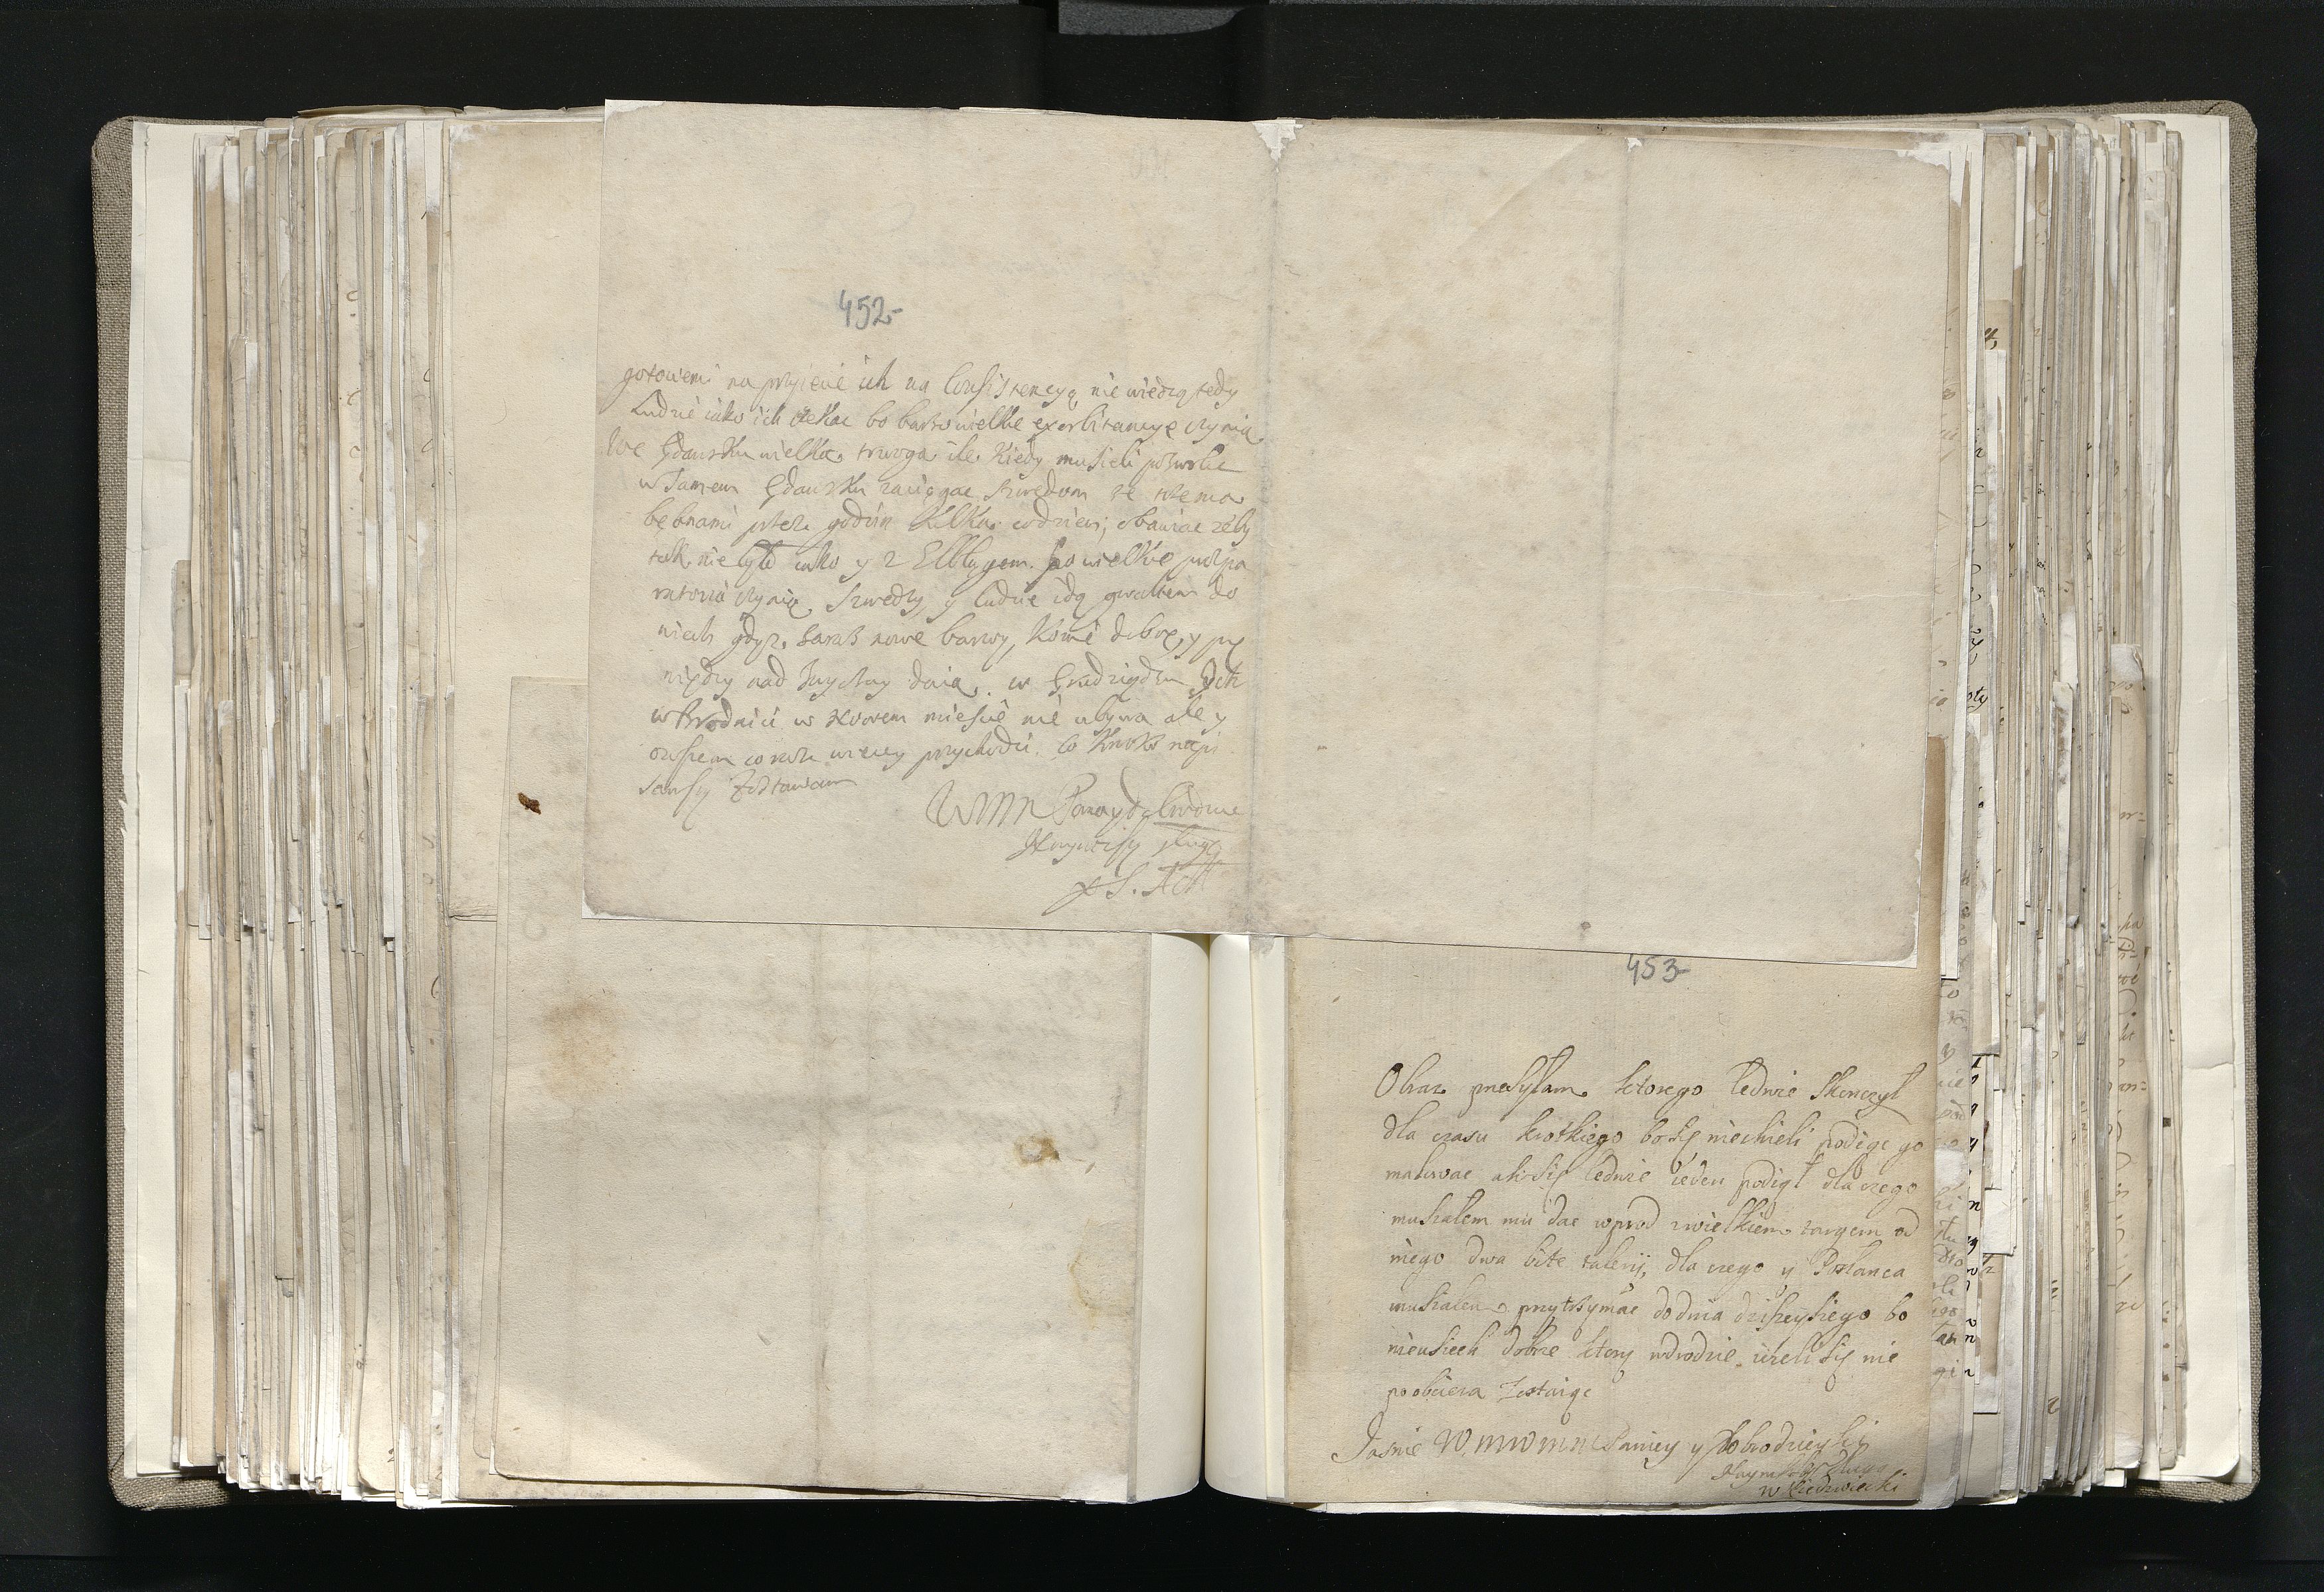 452
gotowemi na przyięcie ich na Consistencyą, nie wiedzą tedy
Ludzie iako ich czekac bo barzo wielkie exorbitancye czynią
We Gdansku wielka trwoga ile kiedy musieli pozwolic
w samem Gdansku zaciągac Szwedom ze
bębnami przez godzin kilka codzien; obawiac zeby
tak nie było iako y z Elblągem. bo wielkie prepa
ratoria czynią Szwedzy, y ludzie idą gwałtem do
niech gdyz zaraz nowe barwy, konie dobre, y pie
niędzy nad zwyczay daią. w Grudziądzu Ich
w Brodnici w swoiem miescie nie ubywa ale y
owszem coraz wiecey przychodzi. to krotko napi
sawszy Zostawam
WMM Pana y Dobrodzieia
Naynizszy sługa
453
Obraz przesyłam ktorego ledwie skonczył
dla czasu krotkiego bo się niechcieli podiąc go
malowac asz się ledwie ieden podiął dla czego
musiałem mu dac wprod z wielkiem targem od
niego dwa bite talery, dla czego y Posłanca
musiałem przytrzymac do dnia dzisieyszego bo
nieusiech dobrze ktory wdrodze iezeli się nie
poobciera Zostaię
Jasnie W. MWMM Paniey y Dobrodzieyki
Naynizszy Sługa